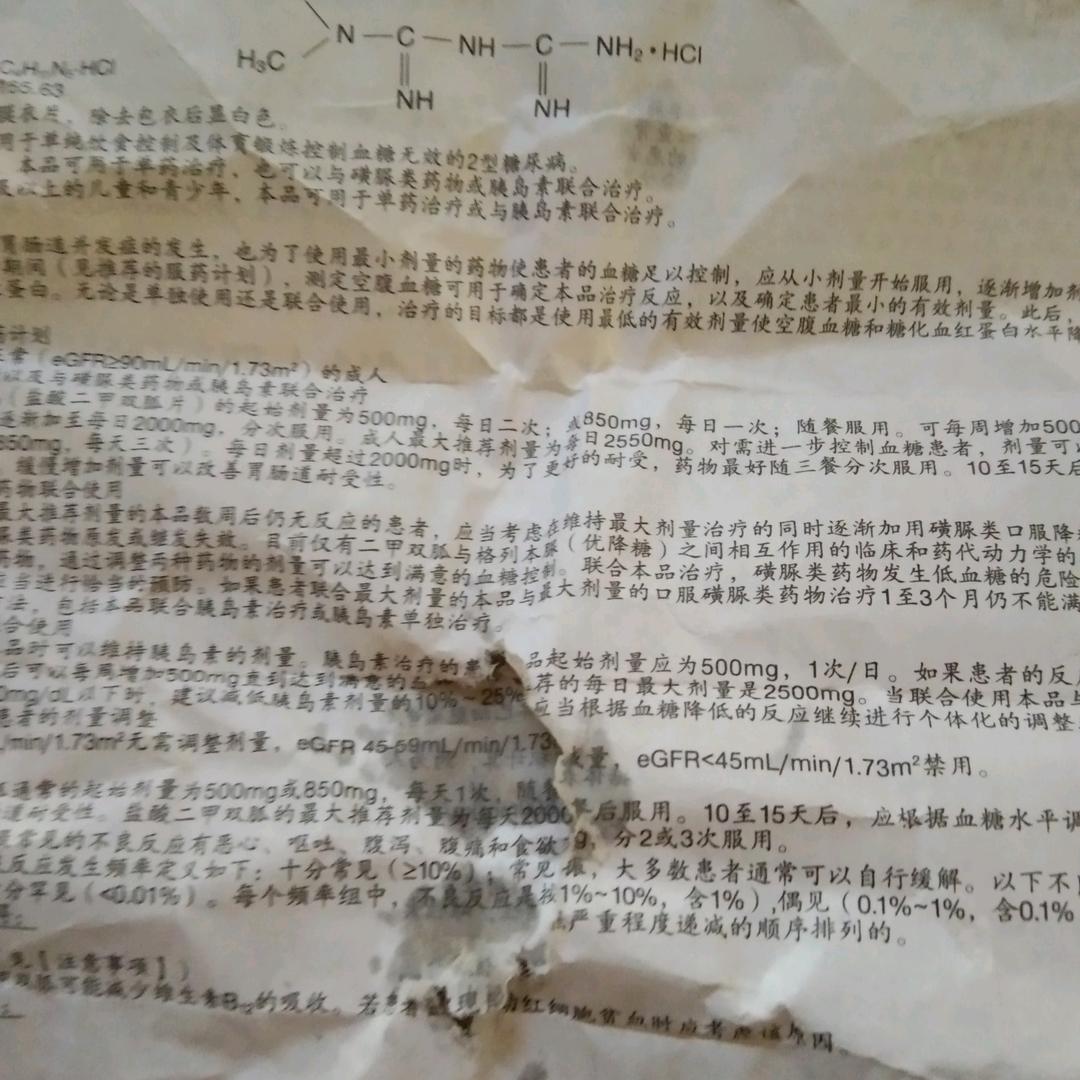 N—C—NH—C—NH₂·HCl
H₃C
NH NH
165.63
膜衣片，除去包衣后显白色。
用于单纯饮食控制及体育锻炼控制血糖无效的2型糖尿病。
本品可用于单药治疗，也可以与磺脲类药物或胰岛素联合治疗。
及以上的儿童和青少年，本品可用于单药治疗或与胰岛素联合治疗。
胃肠道并发症的发生，也为了使用最小剂量的药物使患者的血糖足以控制，应从小剂量开始服用，逐渐增加剂
期间（见推荐的服药计划），测定空腹血糖可用于确定本品治疗反应，以及确定患者最小的有效剂量。此后，
蛋白。无论是单独使用还是联合使用，治疗的目标都是使用最低的有效剂量使空腹血糖和糖化血红蛋白水平降
药计划
正常（eGFR≥90mL/min/1.73m²）的成人
以及与磺脲类药物或胰岛素联合治疗
（盐酸二甲双胍片）的起始剂量为500mg，每日二次；或850mg，每日一次；随餐服用。可每周增加500
逐渐加至每日2000mg，分次服用。成人最大推荐剂量为每日2550mg。对需进一步控制血糖患者，剂量可以
850mg，每天三次）。每日剂量超过2000mg时，为了更好的耐受，药物最好随三餐分次服用。10至15天后
缓慢增加剂量可以改善胃肠道耐受性。
药物联合使用
最大推荐剂量的本品数周后仍无反应的患者，应当考虑在维持最大剂量治疗的同时逐渐加用磺脲类口服降
脲类药物原发或继发失效。目前仅有二甲双胍与格列本脲（优降糖）之间相互作用的临床和药代动力学的
药物，通过调整两种药物的剂量可以达到满意的血糖控制。联合本品治疗，磺脲类药物发生低血糖的危险
应当进行恰当的预防。如果患者联合最大剂量的本品与最大剂量的口服磺脲类药物治疗1至3个月仍不能满
方法，包括本品联合胰岛素治疗或胰岛素单独治疗。
合使用
品时可以维持胰岛素的剂量。胰岛素治疗的患 品起始剂量应为500mg，1次/日。如果患者的反
后可以每周增加500mg直到达到满意的 荐的每日最大剂量是2500mg。当联合使用本品与
0mg/dL以下时，建议减低胰岛素剂量的10%~25% 应当根据血糖降低的反应继续进行个体化的调整
患者的剂量调整
/min/1.73m²无需调整剂量，eGFR 45-59mL/min/1.73 减量，eGFR<45mL/min/1.73m²禁用。
通常的起始剂量为500mg或850mg，每天1次，随餐 餐后服用。10至15天后，应根据血糖水平调
道耐受性。盐酸二甲双胍的最大推荐剂量为每天2000 g，分2或3次服用。
最常见的不良反应有恶心、呕吐、腹泻、腹痛和食欲 振，大多数患者通常可以自行缓解。以下不
反应发生频率定义如下：十分常见（≥10%），常见 1%~10%，含1%），偶见（0.1%~1%，含0.1%
分罕见（<0.01%）。每个频率组中，不良反应是按 严重程度递减的顺序排列的。
见【注意事项】）
双胍可能减少维生素B₁₂的吸收。若患者出现 红细胞贫血时应考虑该原因。